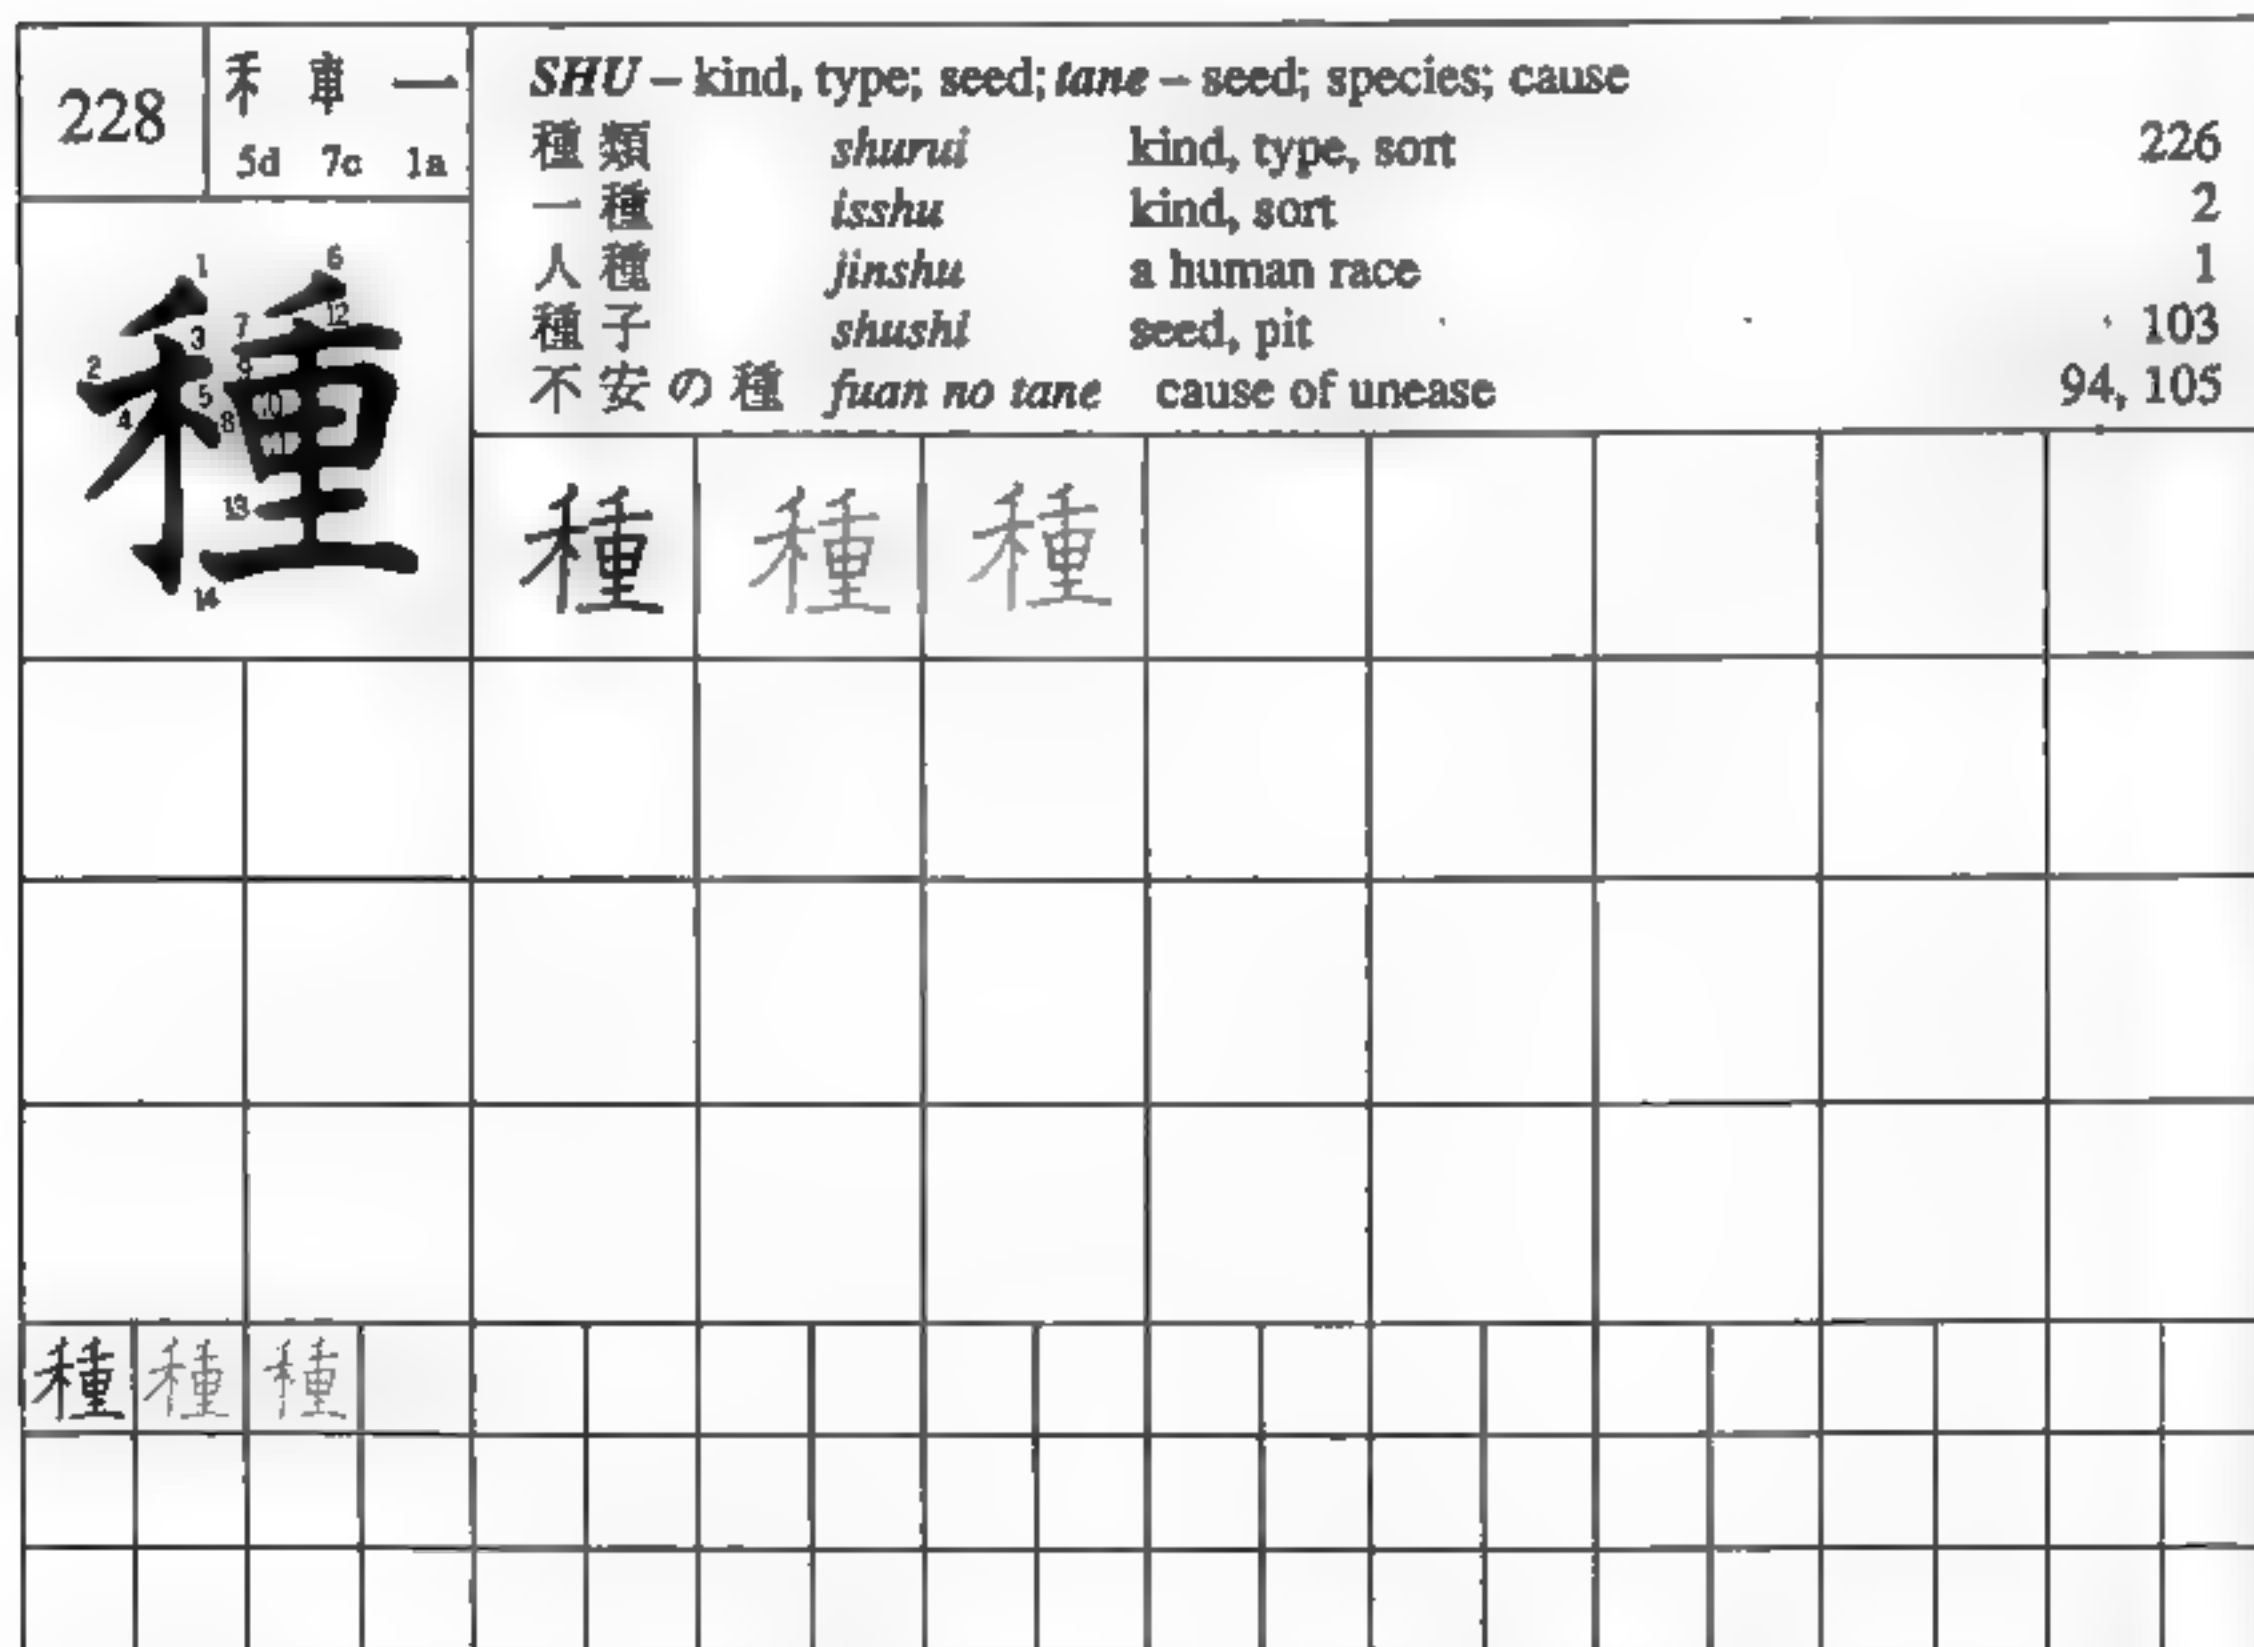 228
禾 車 一
5d 7c 1a
SHU – kind, type; seed; tane – seed; species; cause
種類 shurui kind, type, sort 226
一種 isshu kind, sort 2
人種 jinshu a human race 1
種子 shushi seed, pit 103
不安の種 fuan no tane cause of unease 94, 105
種
1 2 3 4 5 6 7 8 9 10 11 12 13 14
種 種 種
種 種 種